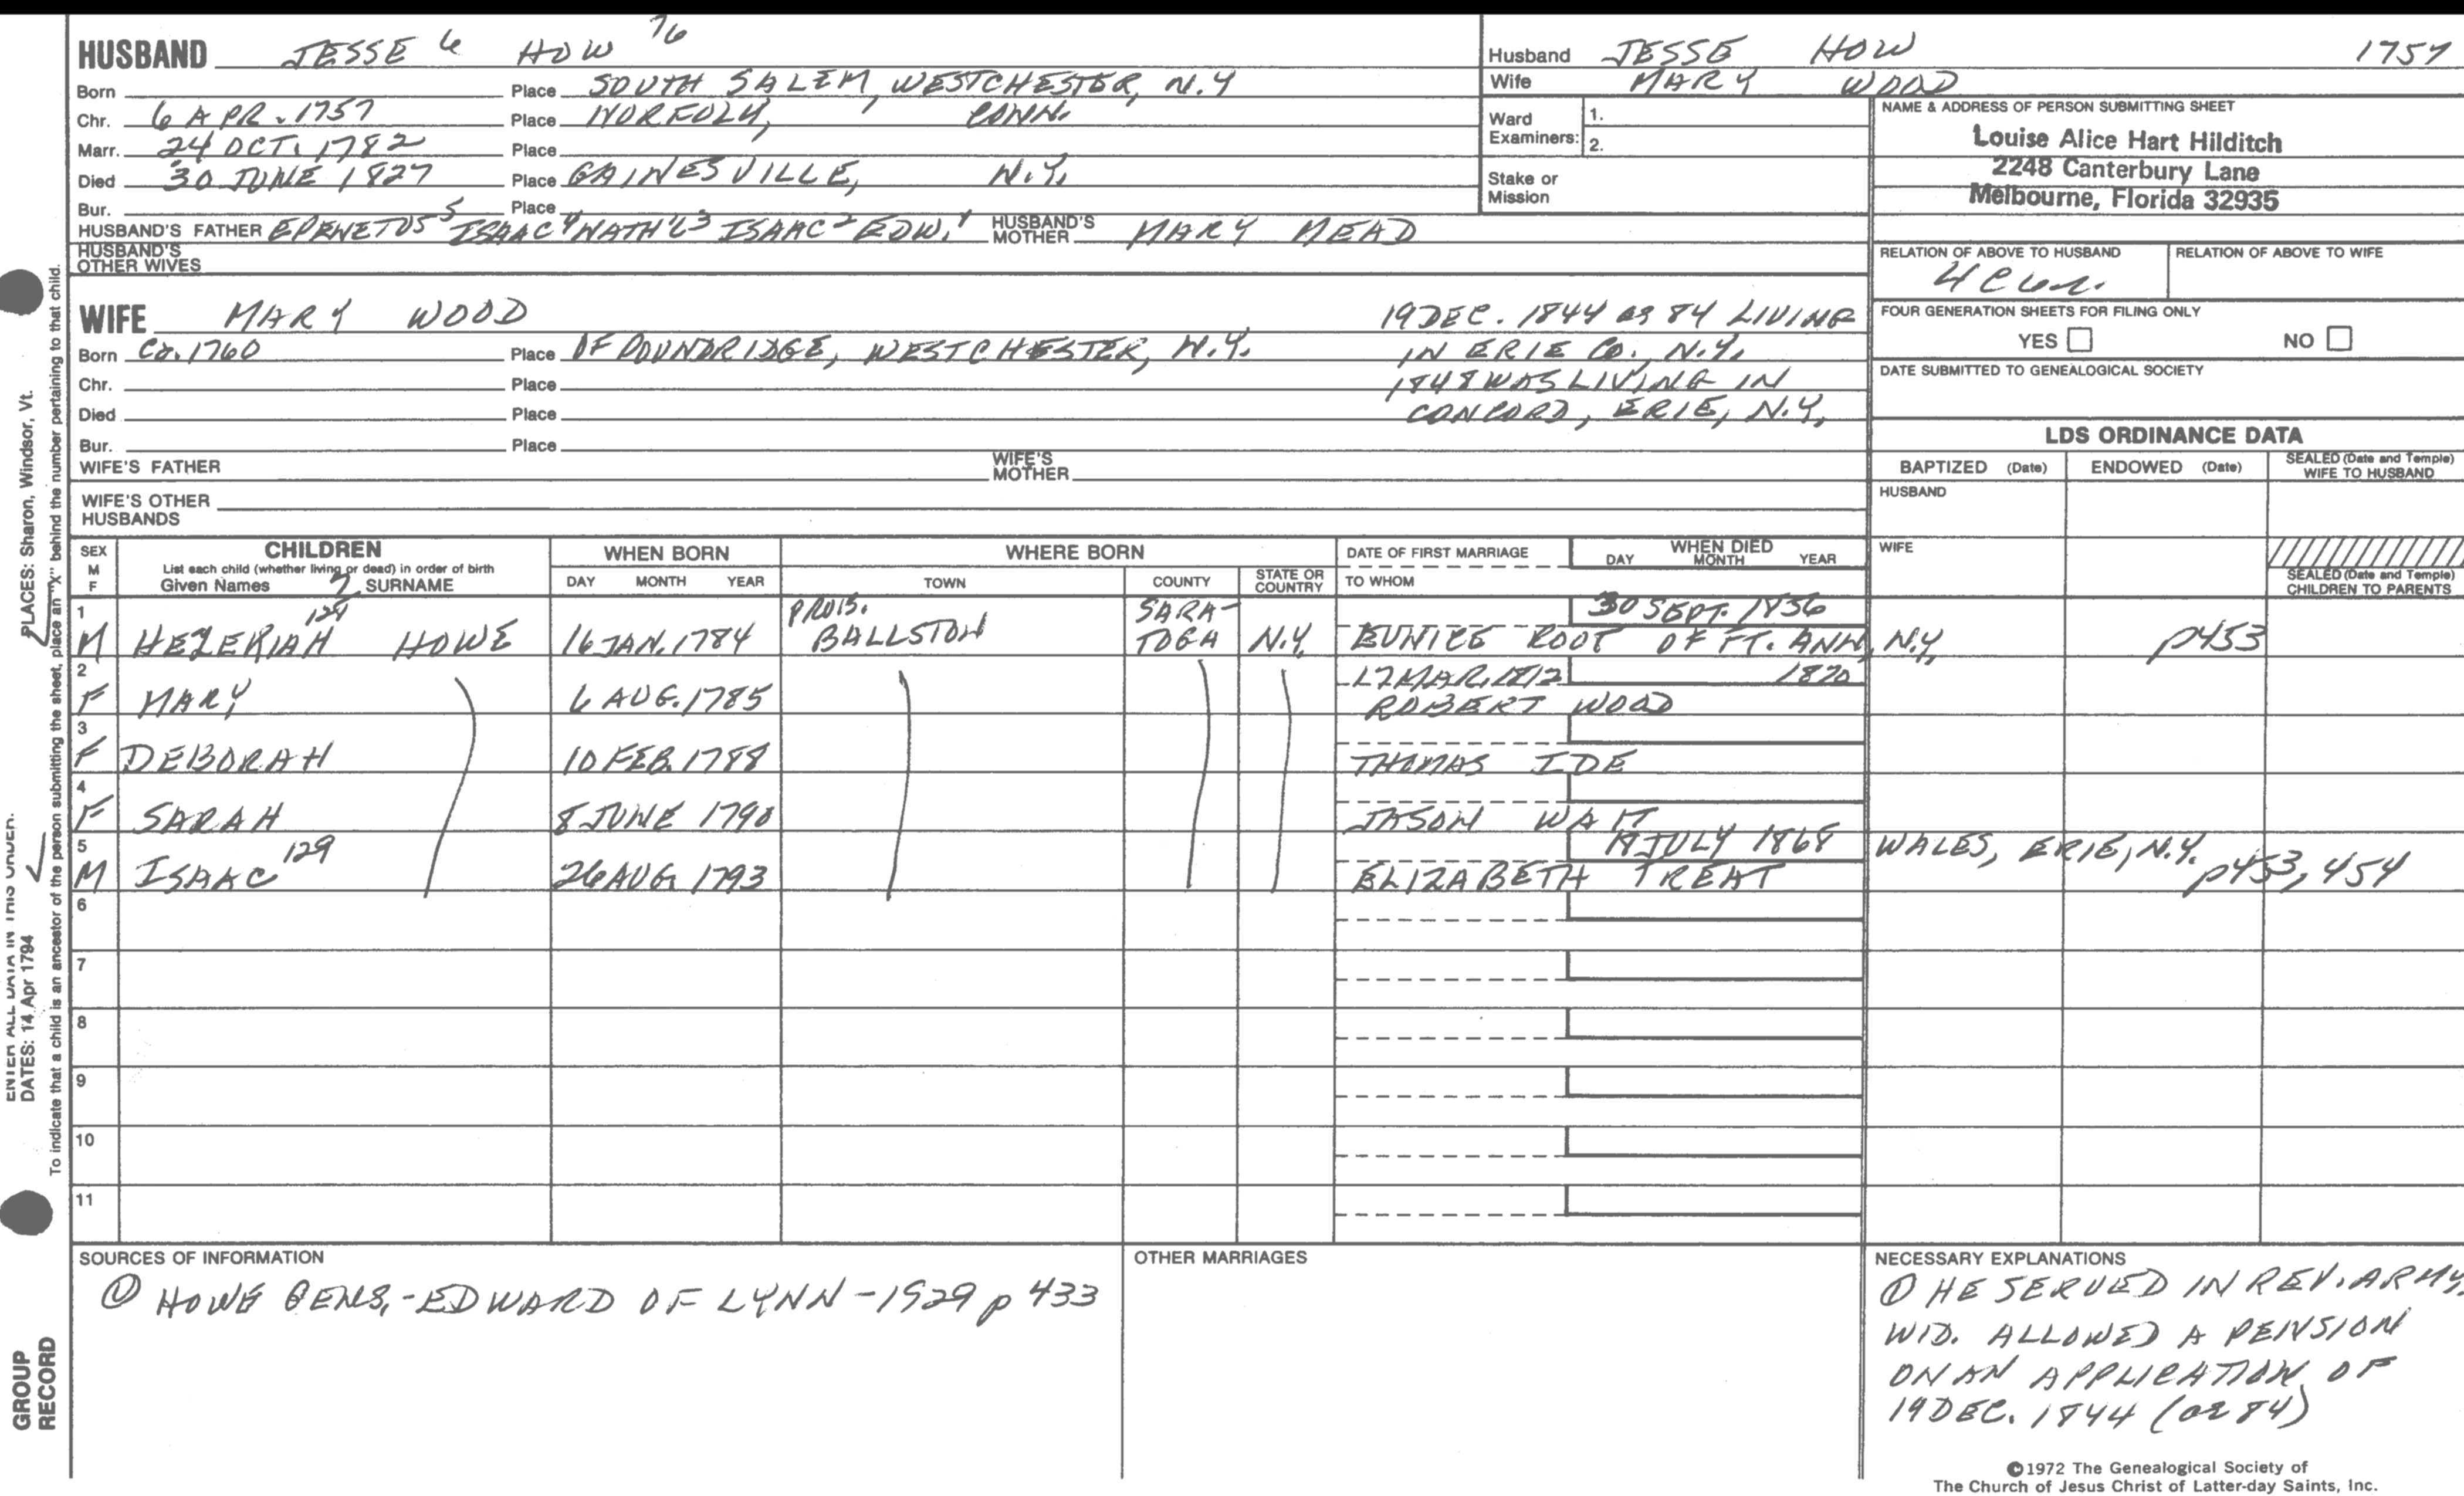 HUSBAND JESSE 6 HOW 76
Born Place SOUTH SALEM, WESTCHESTER, N.Y
Chr. 6 APR. 1757 Place NORFOLK, CONN.
Marr. 24 OCT. 1782 Place
Died 30 JUNE 1827 Place GAINESVILLE, N.Y.
Bur. Place
HUSBAND'S FATHER EPENETUS 5 ISAAC 4 NATH'L 3 ISAAC 2 EDW. 1 HUSBAND'S MOTHER MARY MEAD
HUSBAND'S OTHER WIVES
Husband JESSE HOW 1757
Wife MARY WOOD
Ward Examiners: 1.
2.
Stake or Mission
NAME & ADDRESS OF PERSON SUBMITTING SHEET
Louise Alice Hart Hilditch
2248 Canterbury Lane
Melbourne, Florida 32935
RELATION OF ABOVE TO HUSBAND RELATION OF ABOVE TO WIFE
FOUR GENERATION SHEETS FOR FILING ONLY
YES NO
DATE SUBMITTED TO GENEALOGICAL SOCIETY
WIFE MARY WOOD 19 DEC. 1844 AS 84 LIVING
Born Ca. 1760 Place OF POUNDRIDGE, WESTCHESTER, N.Y. IN ERIE CO., N.Y.
Chr. Place 1848 WAS LIVING IN
Died Place CONCORD, ERIE, N.Y.
Bur. Place
WIFE'S FATHER WIFE'S MOTHER
WIFE'S OTHER HUSBANDS
LDS ORDINANCE DATA
BAPTIZED (Date) ENDOWED (Date) SEALED (Date and Temple) WIFE TO HUSBAND
HUSBAND
WIFE
SEALED (Date and Temple) CHILDREN TO PARENTS
SEX M F CHILDREN WHEN BORN WHERE BORN DATE OF FIRST MARRIAGE WHEN DIED
List each child (whether living or dead) in order of birth
Given Names 7 SURNAME DAY MONTH YEAR TOWN COUNTY STATE OR COUNTRY TO WHOM DAY MONTH YEAR
1 128 PROB. SARA- 30 SEPT. 1836
M HEZEKIAH HOWE 16 JAN. 1784 BALLSTON TOGA N.Y. EUNICE ROOT OF FT. ANN, N.Y. p453
2 17 MAR. 1812 1870
F MARY 6 AUG. 1785 ROBERT WOOD
3
F DEBORAH 10 FEB. 1788 THOMAS IDE
4
F SARAH 8 JUNE 1790 JASON WAIT
5 JULY 1868 WALES, ERIE, N.Y.
M ISAAC 129 26 AUG. 1793 ELIZABETH TREAT p453, 454
6
7
8
9
10
11
SOURCES OF INFORMATION
① HOWE GENS, - EDWARD OF LYNN - 1929 p 433
OTHER MARRIAGES
NECESSARY EXPLANATIONS
① HE SERVED IN REV. ARMY,
WID. ALLOWED A PENSION
ON AN APPLICATION OF
19 DEC. 1844 (AE 84)
©1972 The Genealogical Society of
The Church of Jesus Christ of Latter-day Saints, Inc.
PLACES: Sharon, Windsor, Vt.
ENTER ALL DATA IN THIS ORDER:
DATES: 14 Apr 1794
To indicate that a child is an ancestor of the person submitting the sheet, place an "X" behind the number pertaining to that child.
GROUP
RECORD